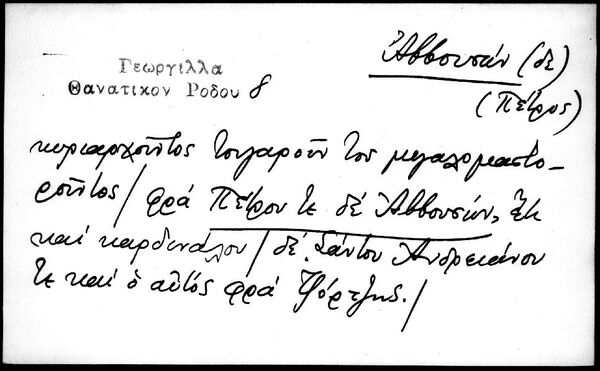 Γεωργιλλα
Θανατικον Ροδου 8
Ἀββουσάν (δὲ)
(Πέτρος)
κυριαρχοῦντος τοιγαροῦν τοῦ μεγαλομαστο-
ροῦντος / φρὰ Πέτρου τε δὲ Ἀββουσάν,
καὶ καρδινάλου / δὲ Σάντου Ἀνδρεάνου
τε καὶ ὁ αὐτὸς φρὰ Τζόρτζης. /